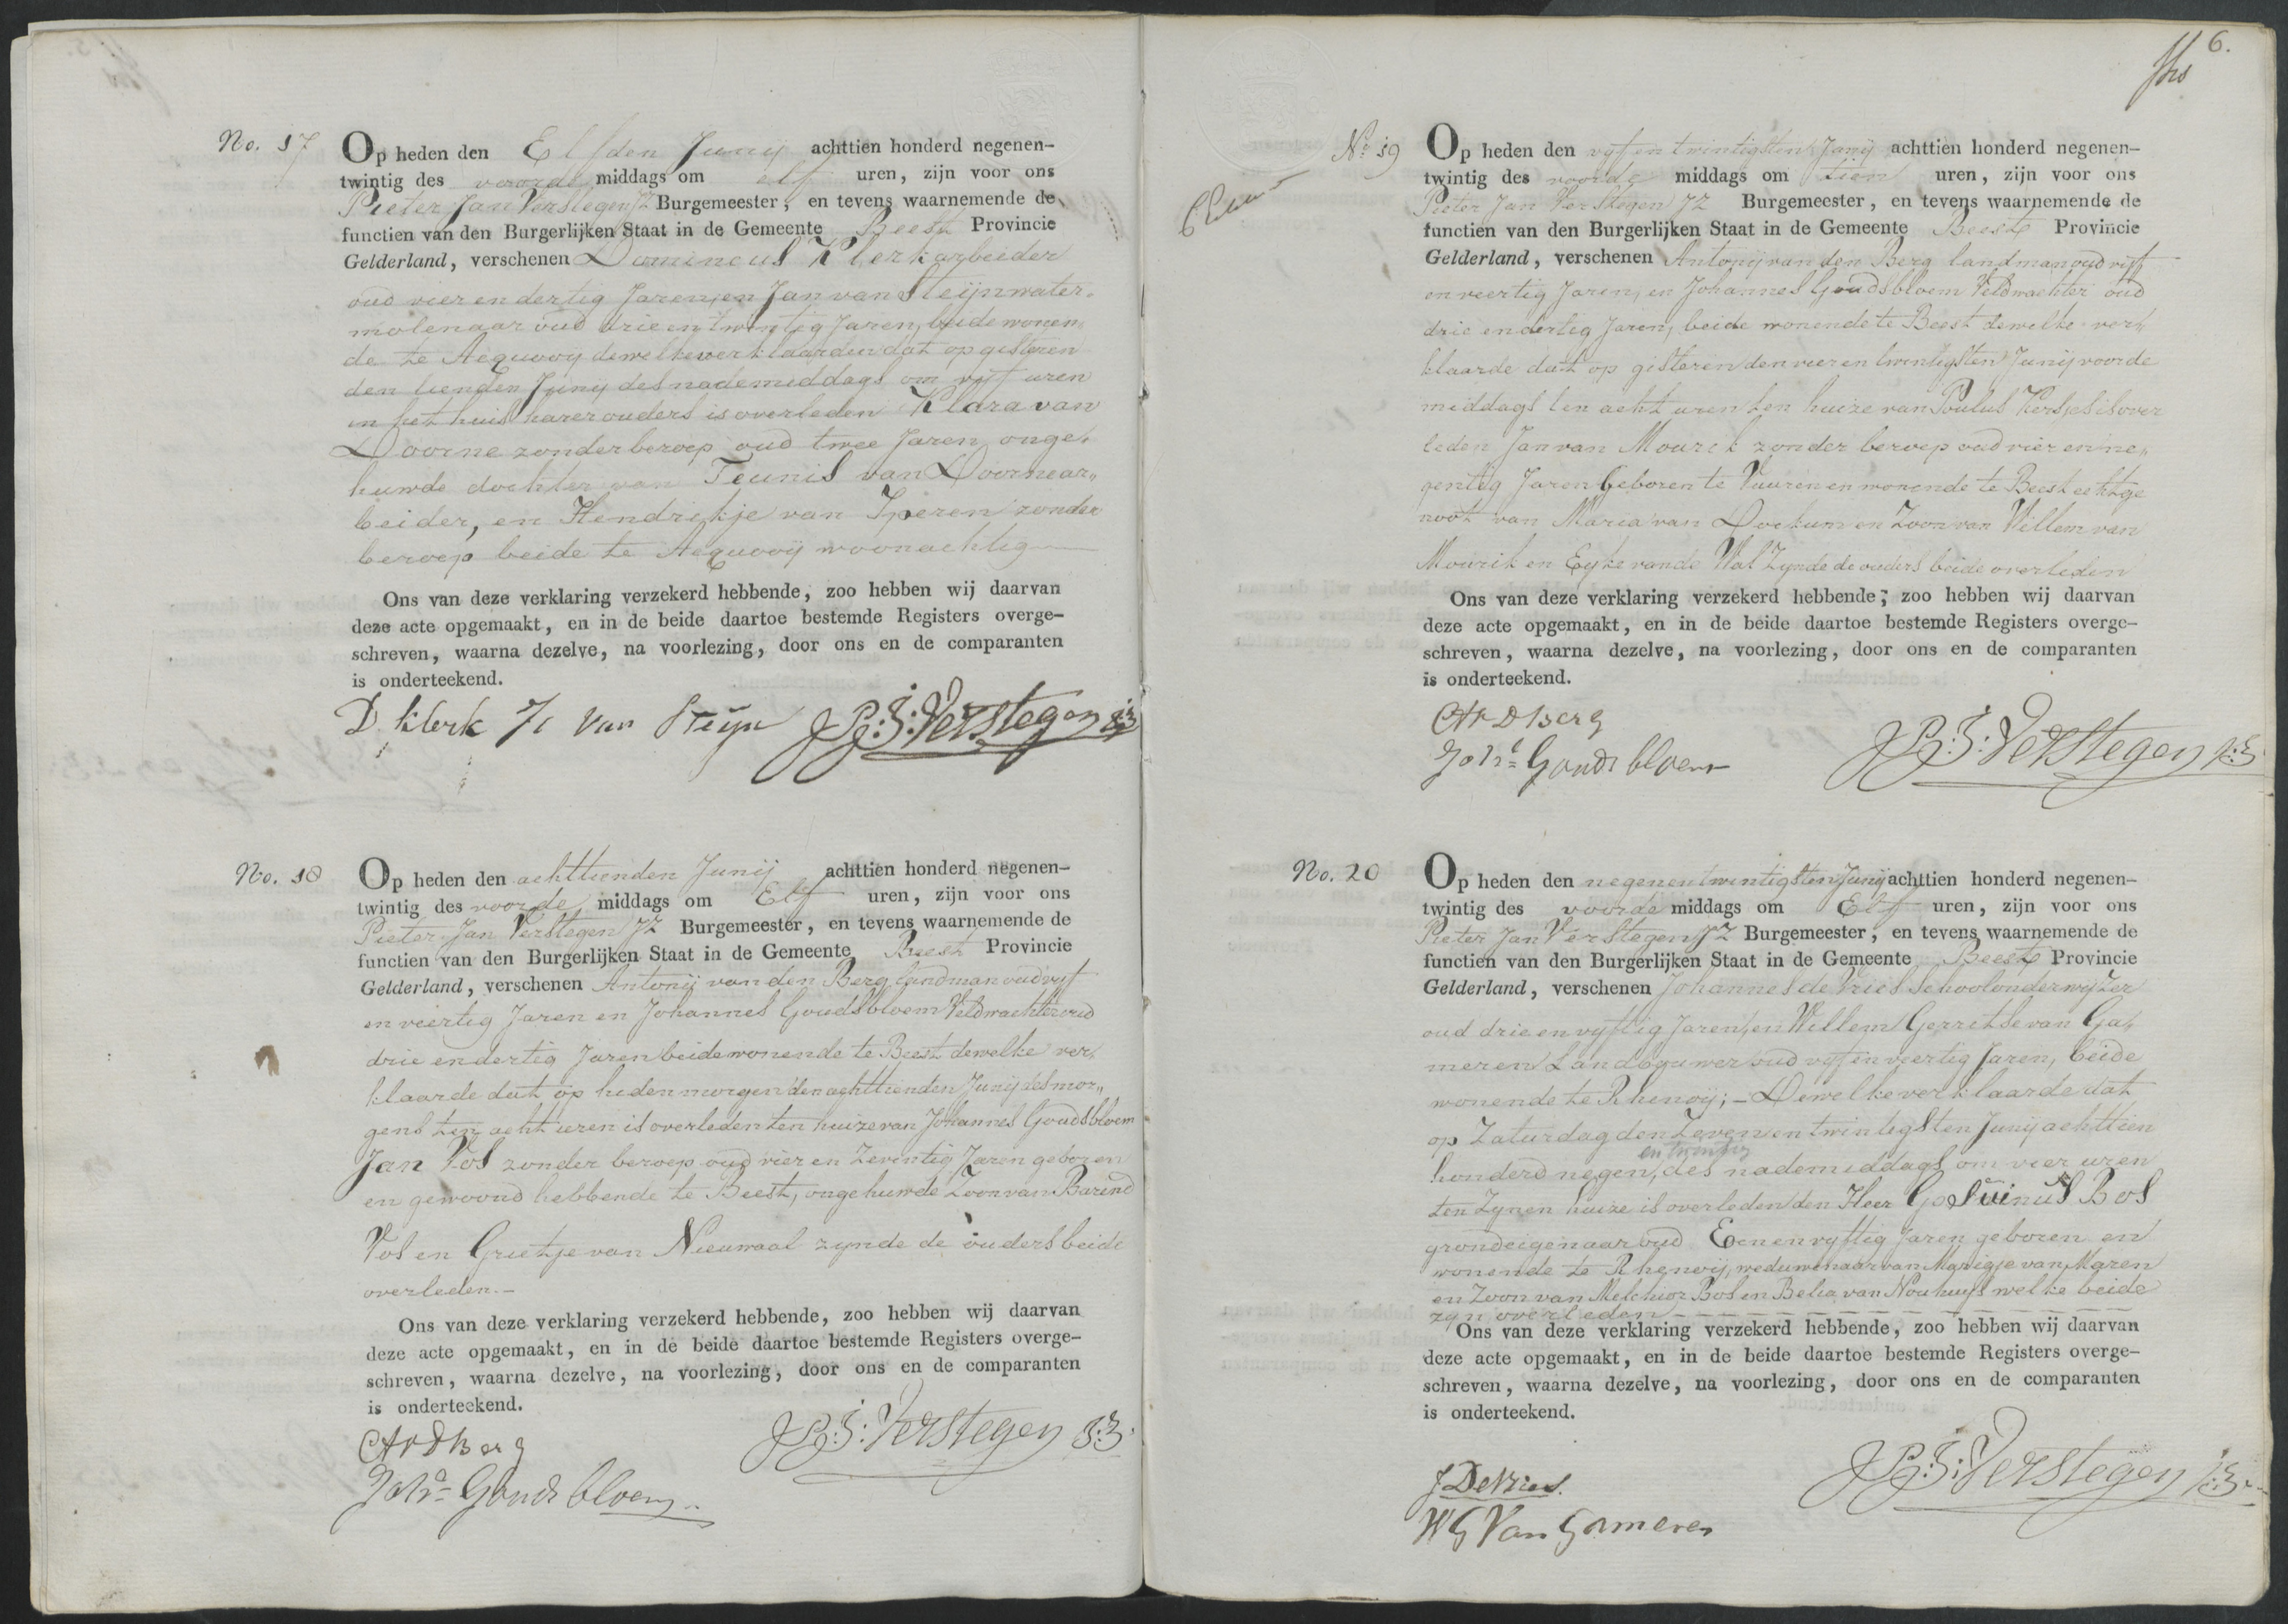 No. 17
Op heden den Elfden Junij achttien honderd negenen-
twintig des voorde middags om elf uren, zijn voor ons
Pieter Jan Verstegen JZ Burgemeester, en tevens waarnemende de
functien van den Burgerlijken Staat in de Gemeente Beest Provincie
Gelderland, verschenen Dominecus Klerk arbeider
oud vier en dertig Jaren, en Jan van Steijn water-
molenaar oud drie en twintig Jaren, beide wonen-
de te Acquooij dewelke verklaarden dat op gisteren
den tienden Junij des nademiddags om vyf uren
in het huis harer ouders is overleden Klara van
Doorne zonder beroep oud twee Jaren onge-
huwde dochter van Teunis van Doorne ar„
beider, en Hendrikje van Iperen zonder
beroep beide te Acquooij woonachtig
Ons van deze verklaring verzekerd hebbende, zoo hebben wij daarvan
deze acte opgemaakt, en in de beide daartoe bestemde Registers overge-
schreven, waarna dezelve, na voorlezing, door ons en de comparanten
is onderteekend.
D. klerk J van Steijn P:J:Verstegen J:Z
No. 18
Op heden den achttienden Junij achttien honderd negenen-
twintig des voorde middags om Elf uren, zijn voor ons
Pieter Jan Verstegen JZ Burgemeester, en tevens waarnemende de
functien van den Burgerlijken Staat in de Gemeente Beest Provincie
Gelderland, verschenen Antonij van den Berg landman oud vyf
en veertig Jaren en Johannes Goudsbloem Veldwachter oud
drie en dertig Jaren beide wonende te Beest dewelke ver„
klaarde dat op heden morgen den achttienden Junij des mor„
gens ten acht uren is overleden ten huize van Johannes Goudsbloem
Jan Vos zonder beroep oud vier en zeventig Jaren geboren
en gewoond hebbende te Beest, ongehuwde Zoon van Barend
Vos en Grietje van Nieuwaal zynde de ouders beide
overleden.-
Ons van deze verklaring verzekerd hebbende, zoo hebben wij daarvan
deze acte opgemaakt, en in de beide daartoe bestemde Registers overge-
schreven, waarna dezelve, na voorlezing, door ons en de comparanten
is onderteekend.
AvdBerg P:J:Verstegen J:Z
Johs Goudsbloem
6.
No 19
Op heden den vyf en twintigsten Junij achttien honderd negenen-
twintig des voorde middags om tien uren, zijn voor ons
Pieter Jan Verstegen JZ Burgemeester, en tevens waarnemende de
functien van den Burgerlijken Staat in de Gemeente Beest Provincie
Gelderland, verschenen Antonij van den Berg landman oud vijf
en veertig Jaren, en Johannes Goudsbloem Veldwachter oud
drie en dertig Jaren, beide wonende te Beest dewelke ver„
klaarde dat op gisteren den vier en twintigsten Junij voorde
middags ten acht uren ten huize van Poulus Kersjes is over
leden Jan van Mourik zonder beroep oud vier en ne„
gentig Jaren Geboren te Vuuren en wonende te Beest echtge
noot van Maria van Dockum en Zoon van Willem van
Mourik en Eyke van de Wal Zynde de ouders beide overleden
Ons van deze verklaring verzekerd hebbende, zoo hebben wij daarvan
deze acte opgemaakt, en in de beide daartoe bestemde Registers overge-
schreven, waarna dezelve, na voorlezing, door ons en de comparanten
is onderteekend.
AvDBerg
Johs Goudsbloem P:J:Verstegen J:Z
No. 20
Op heden den negenentwintigsten Junij achttien honderd negenen-
twintig des voorde middags om Elf uren, zijn voor ons
Pieter Jan Verstegen JZ Burgemeester, en tevens waarnemende de
functien van den Burgerlijken Staat in de Gemeente Beest Provincie
Gelderland, verschenen Johannes de Vries Schoolonderwyzer
oud drie en vyftig Jaren, en Willem Gerritse van Ga„
meren Landbouwer oud vyf en veertig Jaren, beide
wonende te Rhenoij;- Dewelke verklaarde dat
op Zaturdag den Zeven en twintigsten Junij achttien
en twintig
honderd negen, des nademiddags om vier uren
ten Zynen huize is overleden den Heer Gosuinus Bos
grondeigenaar oud Een en vyftig Jaren geboren en
wonende te Rhenoij, weduwenaar van Marigje van Maren
en Zoon van Melchior Bos en Belia van Nouhuys welke beide
zyn overleden
Ons van deze verklaring verzekerd hebbende, zoo hebben wij daarvan
deze acte opgemaakt, en in de beide daartoe bestemde Registers overge-
schreven, waarna dezelve, na voorlezing, door ons en de comparanten
is onderteekend.
J DeVries. P:J:Verstegen J:Z
WG Van Gameren